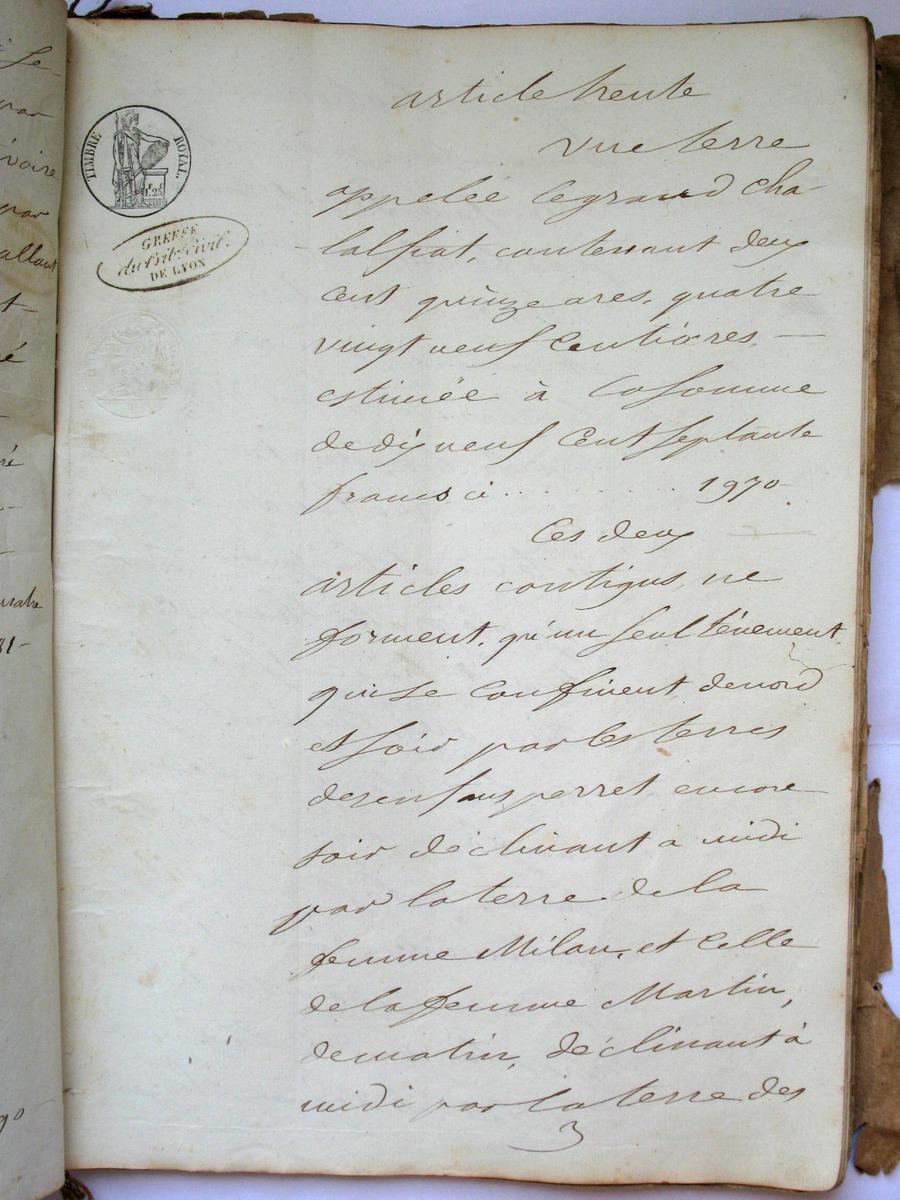 TIMBRE ROYAL
1f.25c
GREFFE
du trib. Civil.
DE LYON
article trente
une terre
appelée le grand cha-
lalfiat, contenant deux
cent quinze ares, quatre
vingt neuf centiares, —
estimée à la somme
de dix neuf cent septante
francs ci . . . . . . . . 1970
Ces deux
articles contigus, ne
forment, qu'un seul tènement
qui se confinent de nord
et soir par les terres
des enfans perret, encore
soir déclinant a midi
par la terre de la
femme Milan, et celle
de la femme Martin,
de matin, déclinant à
midi par la terre des
3